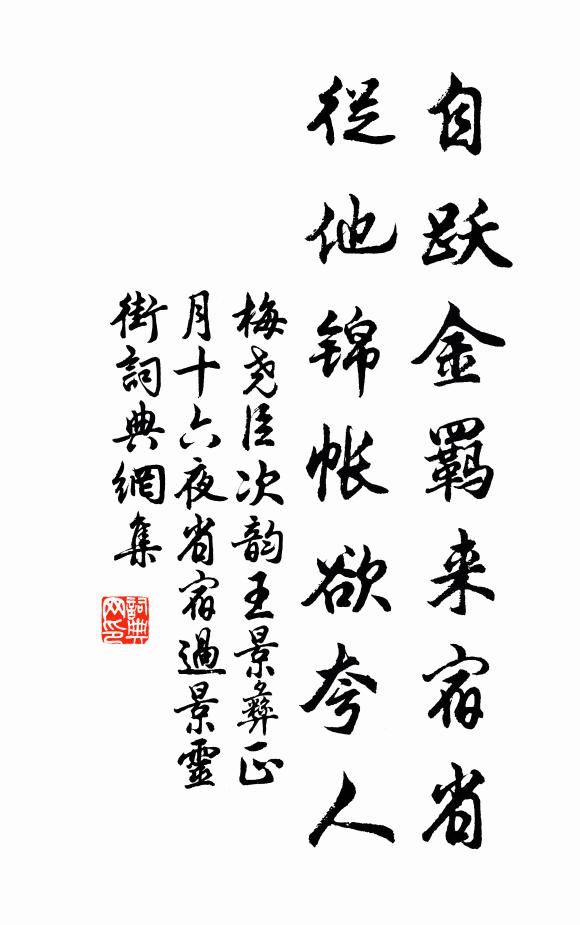 自跃金羁来宿省
從他锦帐欲夸人
梅尧臣次韵王景彝正
月十六夜省宿過景靈
街詞典網集
詞典网印